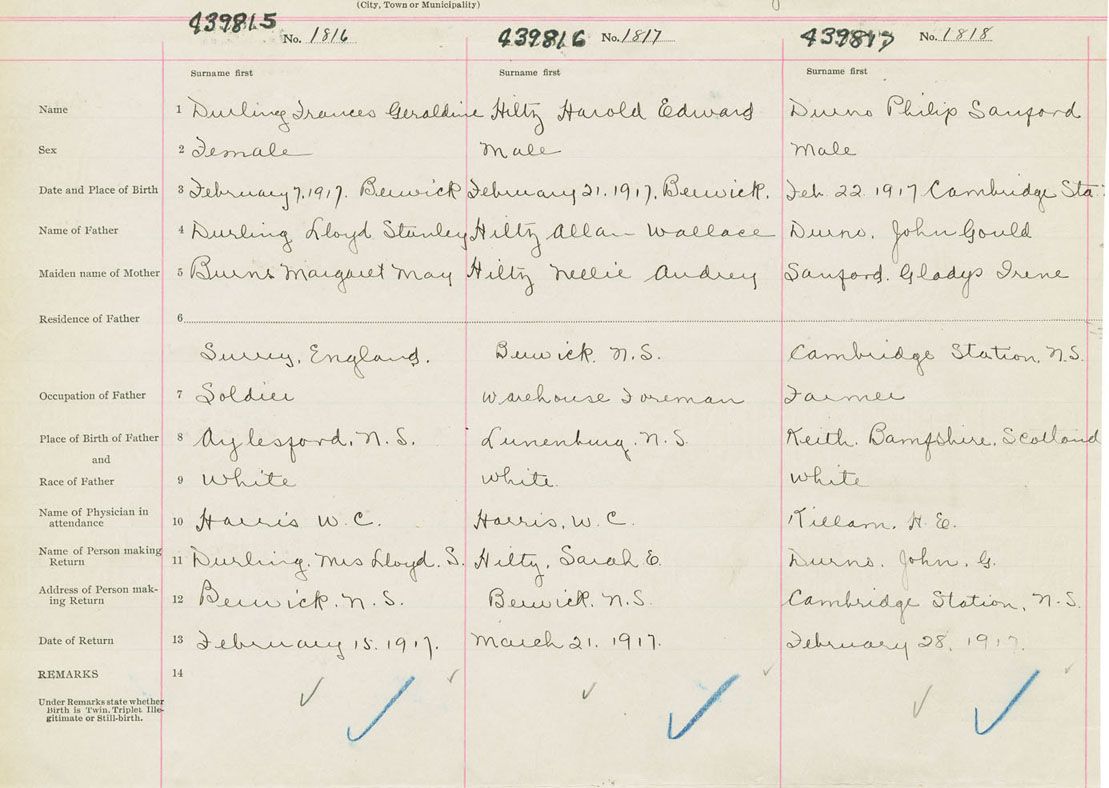 (City, Town or Municipality)
439815 No. 1816 439816 No. 1817 439817 No. 1818
Surname first Surname first Surname first
Name 1 Durling Frances Geraldine Hiltz Harold Edward Durno Philip Sanford
Sex 2 Female Male Male
Date and Place of Birth 3 February 7, 1917. Berwick February 21. 1917. Berwick. Feb. 22. 1917 Cambridge Sta.
Name of Father 4 Durling Lloyd Stanley Hiltz Allan Wallace Durno. John Gould
Maiden name of Mother 5 Burns Margaret May Hiltz Nellie Audrey Sanford. Gladys Irene
Residence of Father 6
Surrey, England. Berwick. N.S. Cambridge Station, N.S.
Occupation of Father 7 Soldier Warehouse Foreman Farmer
Place of Birth of Father 8 Aylesford, N.S. Lunenburg, N.S. Keith. Bamfshire, Scotland
and
Race of Father 9 White White. White
Name of Physician in
attendance 10 Harris W.C. Harris, W.C. Killam, H.E.
Name of Person making
Return 11 Durling, Mrs Lloyd. S. Hiltz, Sarah E. Durno. John. G.
Address of Person mak-
ing Return 12 Berwick. N.S. Berwick. N.S. Cambridge Station, N.S.
Date of Return 13 February 15. 1917. March 21. 1917. February 28. 1917.
REMARKS 14
Under Remarks state whether
Birth is Twin, Triplet Ille-
gitimate or Still-birth.